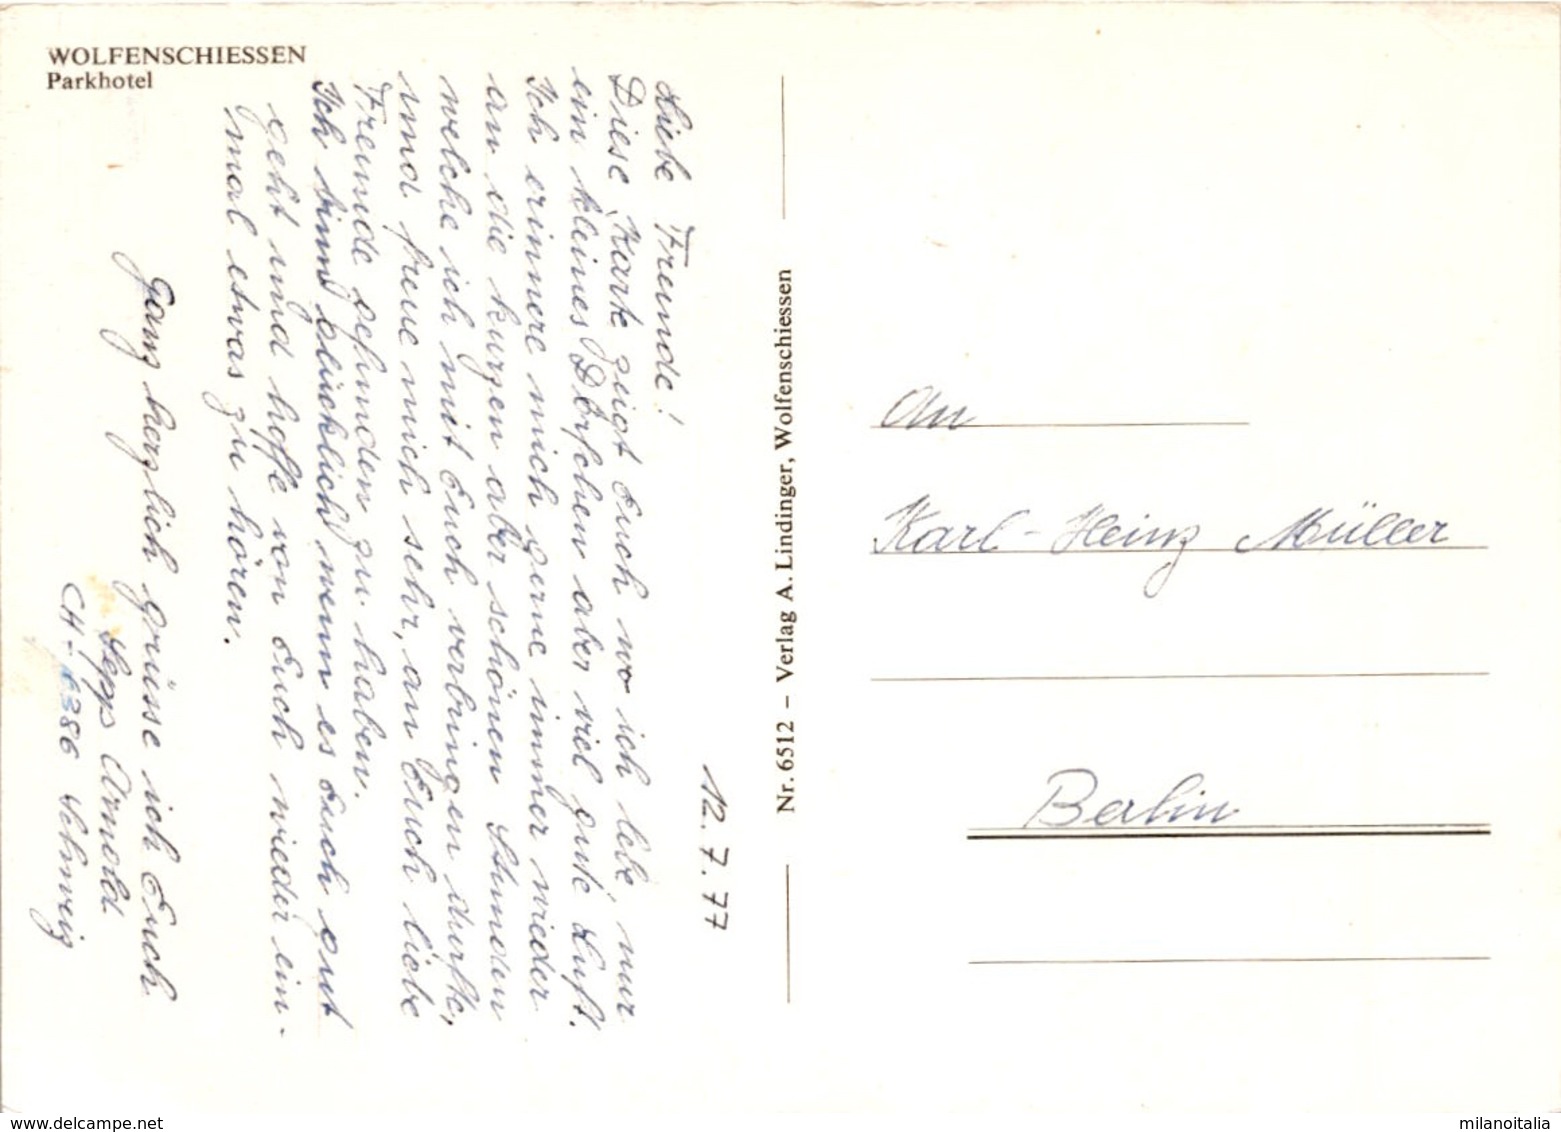 WOLFENSCHIESSEN
Parkhotel
12.7.77
Liebe Freunde!
Diese Karte zeigt Euch wo ich lebe, nur
ein kleines Dörfchen aber viel gute Luft.
Ich erinnere mich gerne immer wieder
an die kurzen aber schönen Stunden
welche ich mit Euch verbringen durfte,
und freue mich sehr, an Euch liebe
Freunde gefunden zu haben.
Ich bin glücklich wenn es Euch gut
geht und hoffe von Euch wieder ein-
mal etwas zu hören.
Ganz herzlich grüsse ich Euch
Sepp Arnold
CH-6386 Schweiz
Nr. 6512 – Verlag A. Lindinger, Wolfenschiessen
An
Karl-Heinz Müller
Berlin
www.delcampe.net
milanoitalia